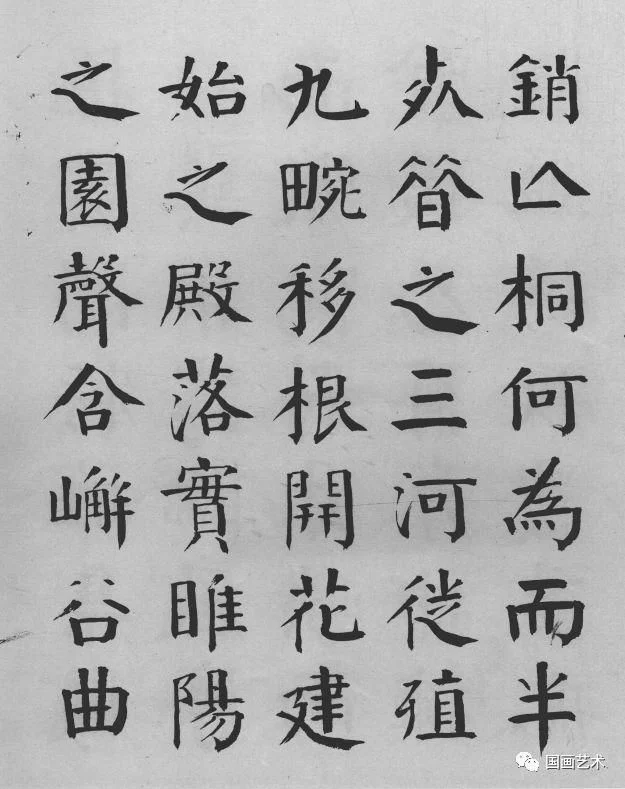 銷亾桐何為而半
死昔之三河徙殖
九畹移根開花建
始之殿落實睢陽
之園聲含嶰谷曲
国画艺术